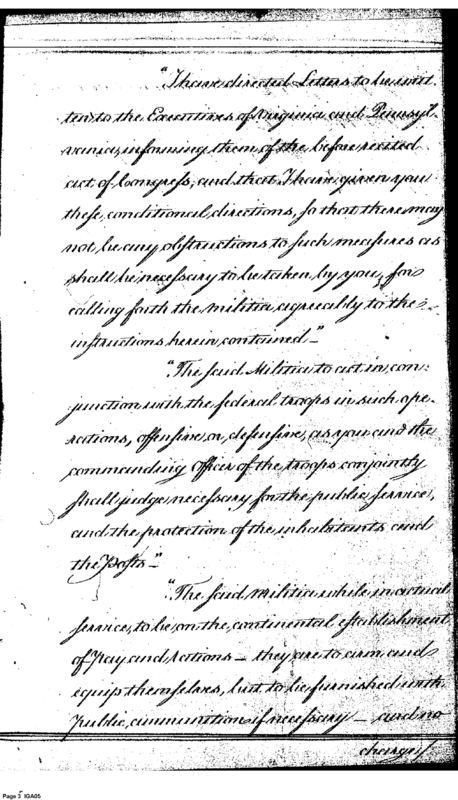 "I have directed Letters to be writ-
ten to the Executives of Virginia and Pennsyl-
vania, informing them of the before recited
act of Congress, and that I have given you
these conditional directions, so that there may
not be any obstructions to such measures as
shall be necessary to be taken by you, for
calling forth the militia agreeably to the
instructions herein contained—"
"The said Militia to act in con:
junction with the federal troops in such ope-
rations, offensive or defensive, as you and the
commanding Officer of the troops conjointly
shall judge necessary for the public service,
and the protection of the inhabitants and
the Posts—"
"The said Militia while in actual
service, to be on the continental establishment
of Pay and Rations— they are to arm and
equip themselves, but to be furnished with
Public ammunition if necessary— and no
charges
Page 5 IGA05